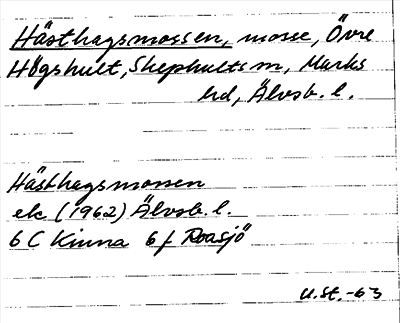 Hästhagsmossen, mosse, Övre
Högshult, Skephults sn, Marks
hd, Älvsb. l.
Hästhagsmossen
ek (1962) Älvsb. l.
6 C Kinna 6 f Roasjö
U.St. -63